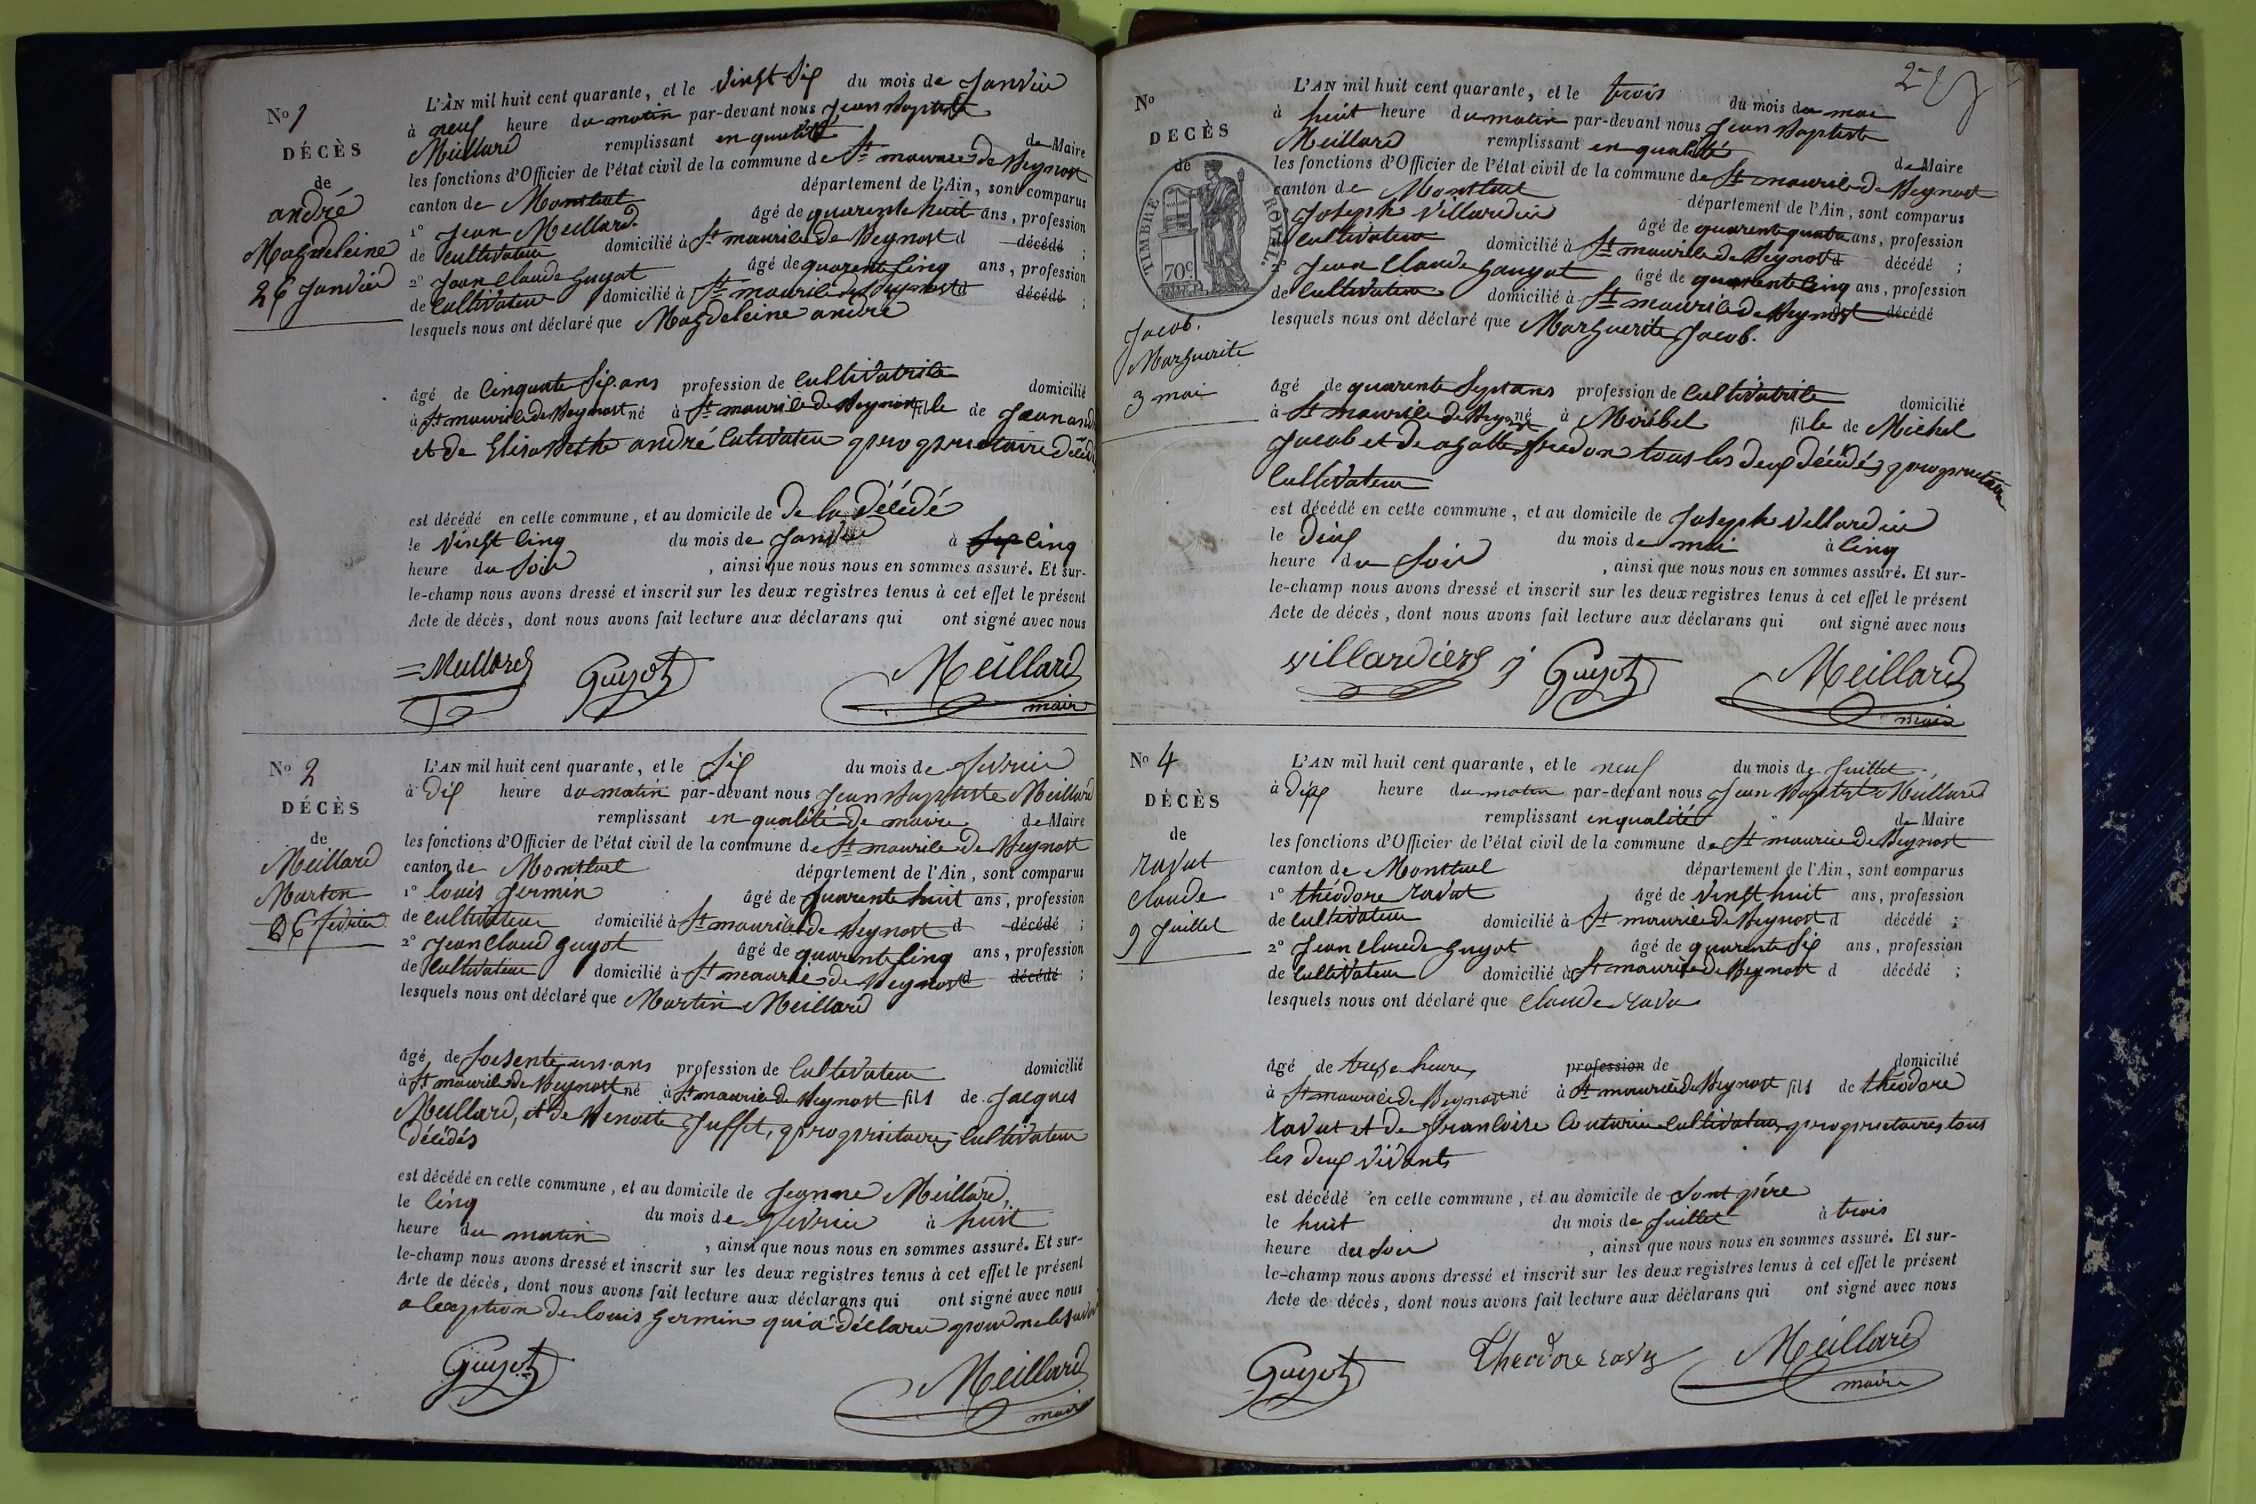 No 1
DÉCÈS
de
andré
Magdeleine
26 Janvier
L'AN mil huit cent quarante, et le vingt Six du mois de Janvier
à neuf heure du matin par-devant nous Jean Baptiste
Meillard remplissant en qualité de Maire
les fonctions d'Officier de l'état civil de la commune de St maurice de Beynost
canton de Montluel département de l'Ain, sont comparus
1° Jean Meillard âgé de quarente huit ans, profession
de Cultivateur domicilié à St maurice de Beynost d décédé ;
2° Jean Claude Guyot âgé de quarente Cinq ans, profession
de Cultivateur domicilié à St maurice de Beynost d décédé ;
lesquels nous ont déclaré que Magdeleine andré
âgé de Cinquante Six ans profession de Cultivatrice domicilié
à St maurice de Beynost né à St maurice de Beynost fille de Jean andré
et de Elisabethe andré Cutivateu propriétaire décédé
est décédé en cette commune, et au domicile de De la Décédé
le vingt Cinq du mois de Janvier à Six Cinq
heure du Soir , ainsi que nous nous en sommes assuré. Et sur-
le-champ nous avons dressé et inscrit sur les deux registres tenus à cet effet le présent
Acte de décès, dont nous avons fait lecture aux déclarans qui ont signé avec nous
Meillard Guyot Meillard
maire
No 2
DÉCÈS
de
Meillard
Marten
6 fevrier
L'AN mil huit cent quarante, et le Six du mois de fevrier
à Dix heure du matin par-devant nous Jean Baptiste Meillard
remplissant en qualité de maire de Maire
les fonctions d'Officier de l'état civil de la commune de St maurice de Beynost
canton de Montluel département de l'Ain, sont comparus
1° louis Jermin âgé de quarente huit ans, profession
de Cultivateur domicilié à St maurice de Beynost d décédé ;
2° Jean Claud Guyot âgé de quarente Cinq ans, profession
de Cultivateur domicilié à St maurice de Beynost d décédé ;
lesquels nous ont déclaré que Martin Meillard
âgé de Soisente un ans profession de Cultivateur domicilié
à St maurice de Beynost né à St maurice de Beynost fils de Jacques
Meillard, et de Benoite Juffet, propriétaires Cultivateur
Décédés
est décédé en cette commune, et au domicile de Jeanne Meillard,
le Cinq du mois de fevrier à huit
heure du matin , ainsi que nous nous en sommes assuré. Et sur-
le-champ nous avons dressé et inscrit sur les deux registres tenus à cet effet le présent
Acte de décès, dont nous avons fait lecture aux déclarans qui ont signé avec nous
a lexption de louis Germin qui a déclaré pour ne le
Guyot Meillard
maire
No
DÉCÈS
de
TIMBRE ROYAL.
70c
Jacob.
Marguerite
3 mai
L'AN mil huit cent quarante, et le trois du mois de mai
à huit heure du matin par-devant nous Jean Baptiste
Meillard remplissant en qualité de Maire
les fonctions d'Officier de l'état civil de la commune de St maurice de Beynost
canton de Montluel département de l'Ain, sont comparus
Joseph Villardier âgé de quarente quatre ans, profession
Cultivateur domicilié à St maurice de Beynost d décédé ;
2° Jean Claude Gauyot âgé de quarente Cinq ans, profession
de Cultivateur domicilié à St maurice de Beynost décédé
lesquels nous ont déclaré que Marguerite Jacob.
âgé de quarente Sept ans profession de Cultivatrice domicilié
à St maurice de Beynost né à Miribel fille de Michel
Jacob et de agatte tous les deux décédés propriétaire
Cultivateur
est décédé en cette commune, et au domicile de Joseph Villardier
le Deux du mois de mai à Cinq
heure du Soir , ainsi que nous nous en sommes assuré. Et sur-
le-champ nous avons dressé et inscrit sur les deux registres tenus à cet effet le présent
Acte de décès, dont nous avons fait lecture aux déclarans qui ont signé avec nous
villardiers j Guyot Meillard
maire
No 4
DÉCÈS
de
ravat
Claude
9 Juillet
L'AN mil huit cent quarante, et le neuf du mois de Juillet
à Dix heure du matin par-devant nous Jean Baptiste Meillard
remplissant en qualité de Maire
les fonctions d'Officier de l'état civil de la commune de St maurice De Beynost
canton de Montluel département de l'Ain, sont comparus
1° théodore ravat âgé de vingt huit ans, profession
de Cultivateur domicilié à St maurice de Beynost d décédé ;
2° Jean Claude Guyot âgé de quarente Six ans, profession
de Cultivateur domicilié à St maurice De Beynost d décédé ;
lesquels nous ont déclaré que Claude rava
âgé de treze heure profession de domicilié
à St maurice de Beynost né à St maurice de Beynost fils de théodore
ravat et de francoise Couturier Cultivateur propriétaires tous
les deux vivants
est décédé en cette commune, et au domicile de Sont père
le huit du mois de Juillet à trois
heure du Soir , ainsi que nous nous en sommes assuré. Et sur-
le-champ nous avons dressé et inscrit sur les deux registres tenus à cet effet le présent
Acte de décès, dont nous avons fait lecture aux déclarans qui ont signé avec nous
Guyot Theodore Meillard
maire